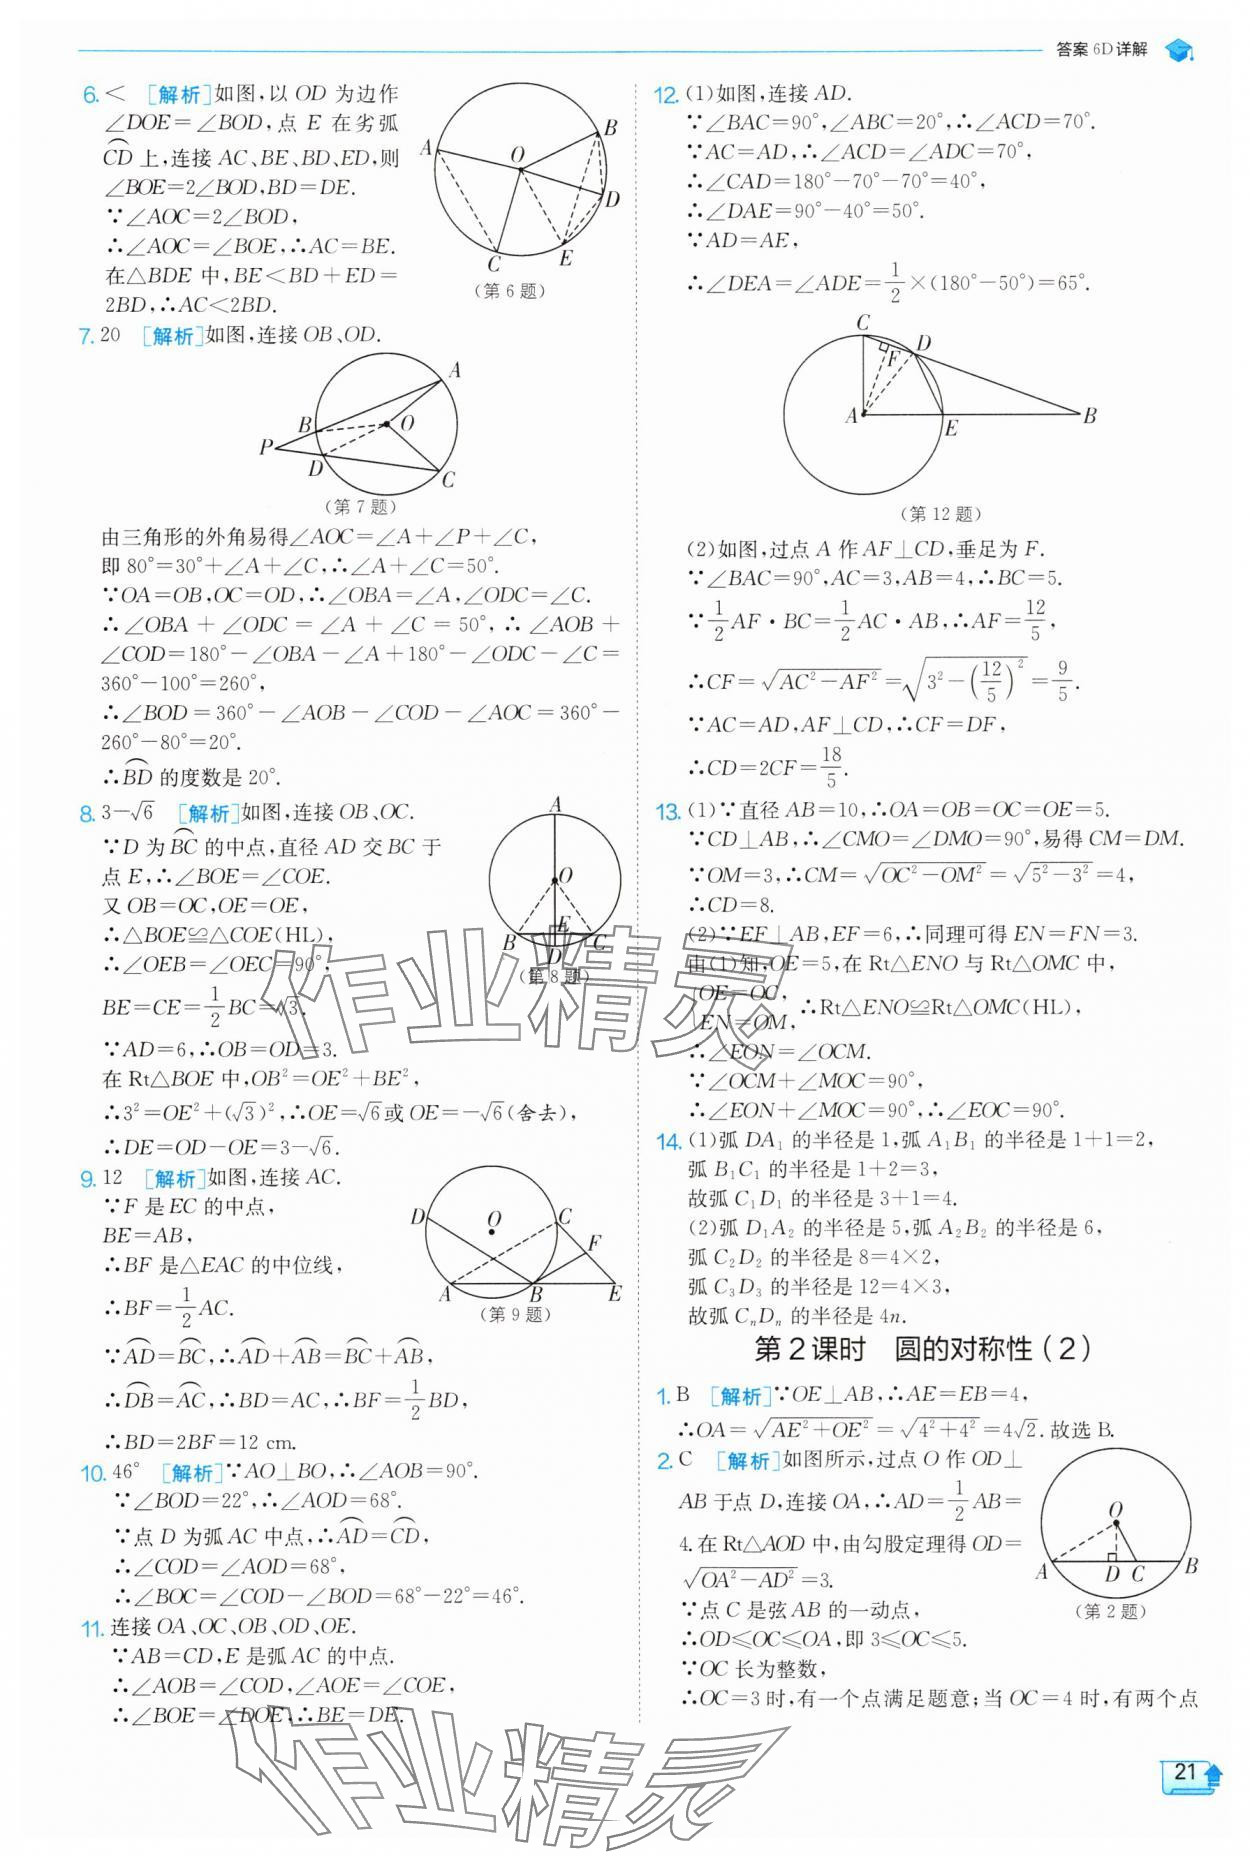 答案 6D详解
6. < [解析]如图,以 OD 为边作
∠DOE=∠BOD,点 E 在劣弧
CD 上,连接 AC、BE、BD、ED,则
∠BOE=2∠BOD,BD=DE.
∵∠AOC=2∠BOD,
∴∠AOC=∠BOE,∴AC=BE.
在△BDE 中,BE<BD+ED=
2BD,∴AC<2BD.
A B O D C E
(第 6 题)
7. 20 [解析]如图,连接 OB、OD.
A B O P D C
(第 7 题)
由三角形的外角易得∠AOC=∠A+∠P+∠C,
即 80°=30°+∠A+∠C,∴∠A+∠C=50°.
∵OA=OB,OC=OD,∴∠OBA=∠A,∠ODC=∠C.
∴∠OBA+∠ODC=∠A+∠C=50°,∴∠AOB+
∠COD=180°-∠OBA-∠A+180°-∠ODC-∠C=
360°-100°=260°,
∴∠BOD=360°-∠AOB-∠COD-∠AOC=360°-
260°-80°=20°.
∴BD⌢ 的度数是 20°.
8. 3-√6 [解析]如图,连接 OB、OC.
∵D 为BC⌢ 的中点,直径 AD 交 BC 于
点 E,∴∠BOE=∠COE.
又 OB=OC,OE=OE,
∴△BOE≌△COE(HL),
∴∠OEB=∠OEC=90°,
BE=CE=1/2 BC=√3.
∵AD=6,∴OB=OD=3.
在 Rt△BOE 中,OB²=OE²+BE²,
∴3²=OE²+(√3)²,∴OE=√6或 OE=-√6(舍去),
∴DE=OD-OE=3-√6.
A O E B D C
(第 8 题)
9. 12 [解析]如图,连接 AC.
∵F 是 EC 的中点,
BE=AB,
∴BF 是△EAC 的中位线,
∴BF=1/2 AC.
∵AD⌢=BC⌢,∴AD⌢+AB⌢=BC⌢+AB⌢,
∴DB⌢=AC⌢,∴BD=AC,∴BF=1/2 BD,
∴BD=2BF=12 cm.
D O C F A B E
(第 9 题)
10. 46° [解析]∵AO⊥BO,∴∠AOB=90°.
∵∠BOD=22°,∴∠AOD=68°.
∵点 D 为弧 AC 中点,∴AD⌢=CD⌢,
∴∠COD=∠AOD=68°,
∴∠BOC=∠COD-∠BOD=68°-22°=46°.
11. 连接 OA、OC、OB、OD、OE.
∵AB=CD,E 是弧 AC 的中点.
∴∠AOB=∠COD,∠AOE=∠COE,
∴∠BOE=∠DOE,∴BE=DE.
12. (1)如图,连接 AD.
∵∠BAC=90°,∠ABC=20°,∴∠ACD=70°.
∵AC=AD,∴∠ACD=∠ADC=70°,
∴∠CAD=180°-70°-70°=40°,
∴∠DAE=90°-40°=50°.
∵AD=AE,
∴∠DEA=∠ADE=1/2×(180°-50°)=65°.
C D F A E B
(第 12 题)
(2)如图,过点 A 作 AF⊥CD,垂足为 F.
∵∠BAC=90°,AC=3,AB=4,∴BC=5.
∵1/2 AF·BC=1/2 AC·AB,∴AF=12/5,
∴CF=√(AC²-AF²)=√(3²-(12/5)²)=9/5.
∵AC=AD,AF⊥CD,∴CF=DF,
∴CD=2CF=18/5.
13. (1)∵直径 AB=10,∴OA=OB=OC=OE=5.
∵CD⊥AB,∴∠CMO=∠DMO=90°,易得 CM=DM.
∵OM=3,∴CM=√(OC²-OM²)=√(5²-3²)=4,
∴CD=8.
(2)∵EF⊥AB,EF=6,∴同理可得 EN=FN=3.
由(1)知,OE=5,在 Rt△ENO 与 Rt△OMC 中,
{OE=OC, EN=OM, ∴Rt△ENO≌Rt△OMC(HL),
∴∠EON=∠OCM.
∵∠OCM+∠MOC=90°,
∴∠EON+∠MOC=90°,∴∠EOC=90°.
14. (1)弧 DA₁ 的半径是 1,弧 A₁B₁ 的半径是 1+1=2,
弧 B₁C₁ 的半径是 1+2=3,
故弧 C₁D₁ 的半径是 3+1=4.
(2)弧 D₁A₂ 的半径是 5,弧 A₂B₂ 的半径是 6,
弧 C₂D₂ 的半径是 8=4×2,
弧 C₃D₃ 的半径是 12=4×3,
故弧 CₙDₙ 的半径是 4n.
第 2 课时 圆的对称性(2)
1. B [解析]∵OE⊥AB,∴AE=EB=4,
∴OA=√(AE²+OE²)=√(4²+4²)=4√2.故选 B.
2. C [解析]如图所示,过点 O 作 OD⊥
AB 于点 D,连接 OA,∴AD=1/2 AB=
4.在 Rt△AOD 中,由勾股定理得 OD=
√(OA²-AD²)=3.
∵点 C 是弦 AB 的一动点,
∴OD≤OC≤OA,即 3≤OC≤5.
∵OC 长为整数,
∴OC=3 时,有一个点满足题意;当 OC=4 时,有两个点
O A D C B
(第 2 题)
作业精灵
作业精灵
21